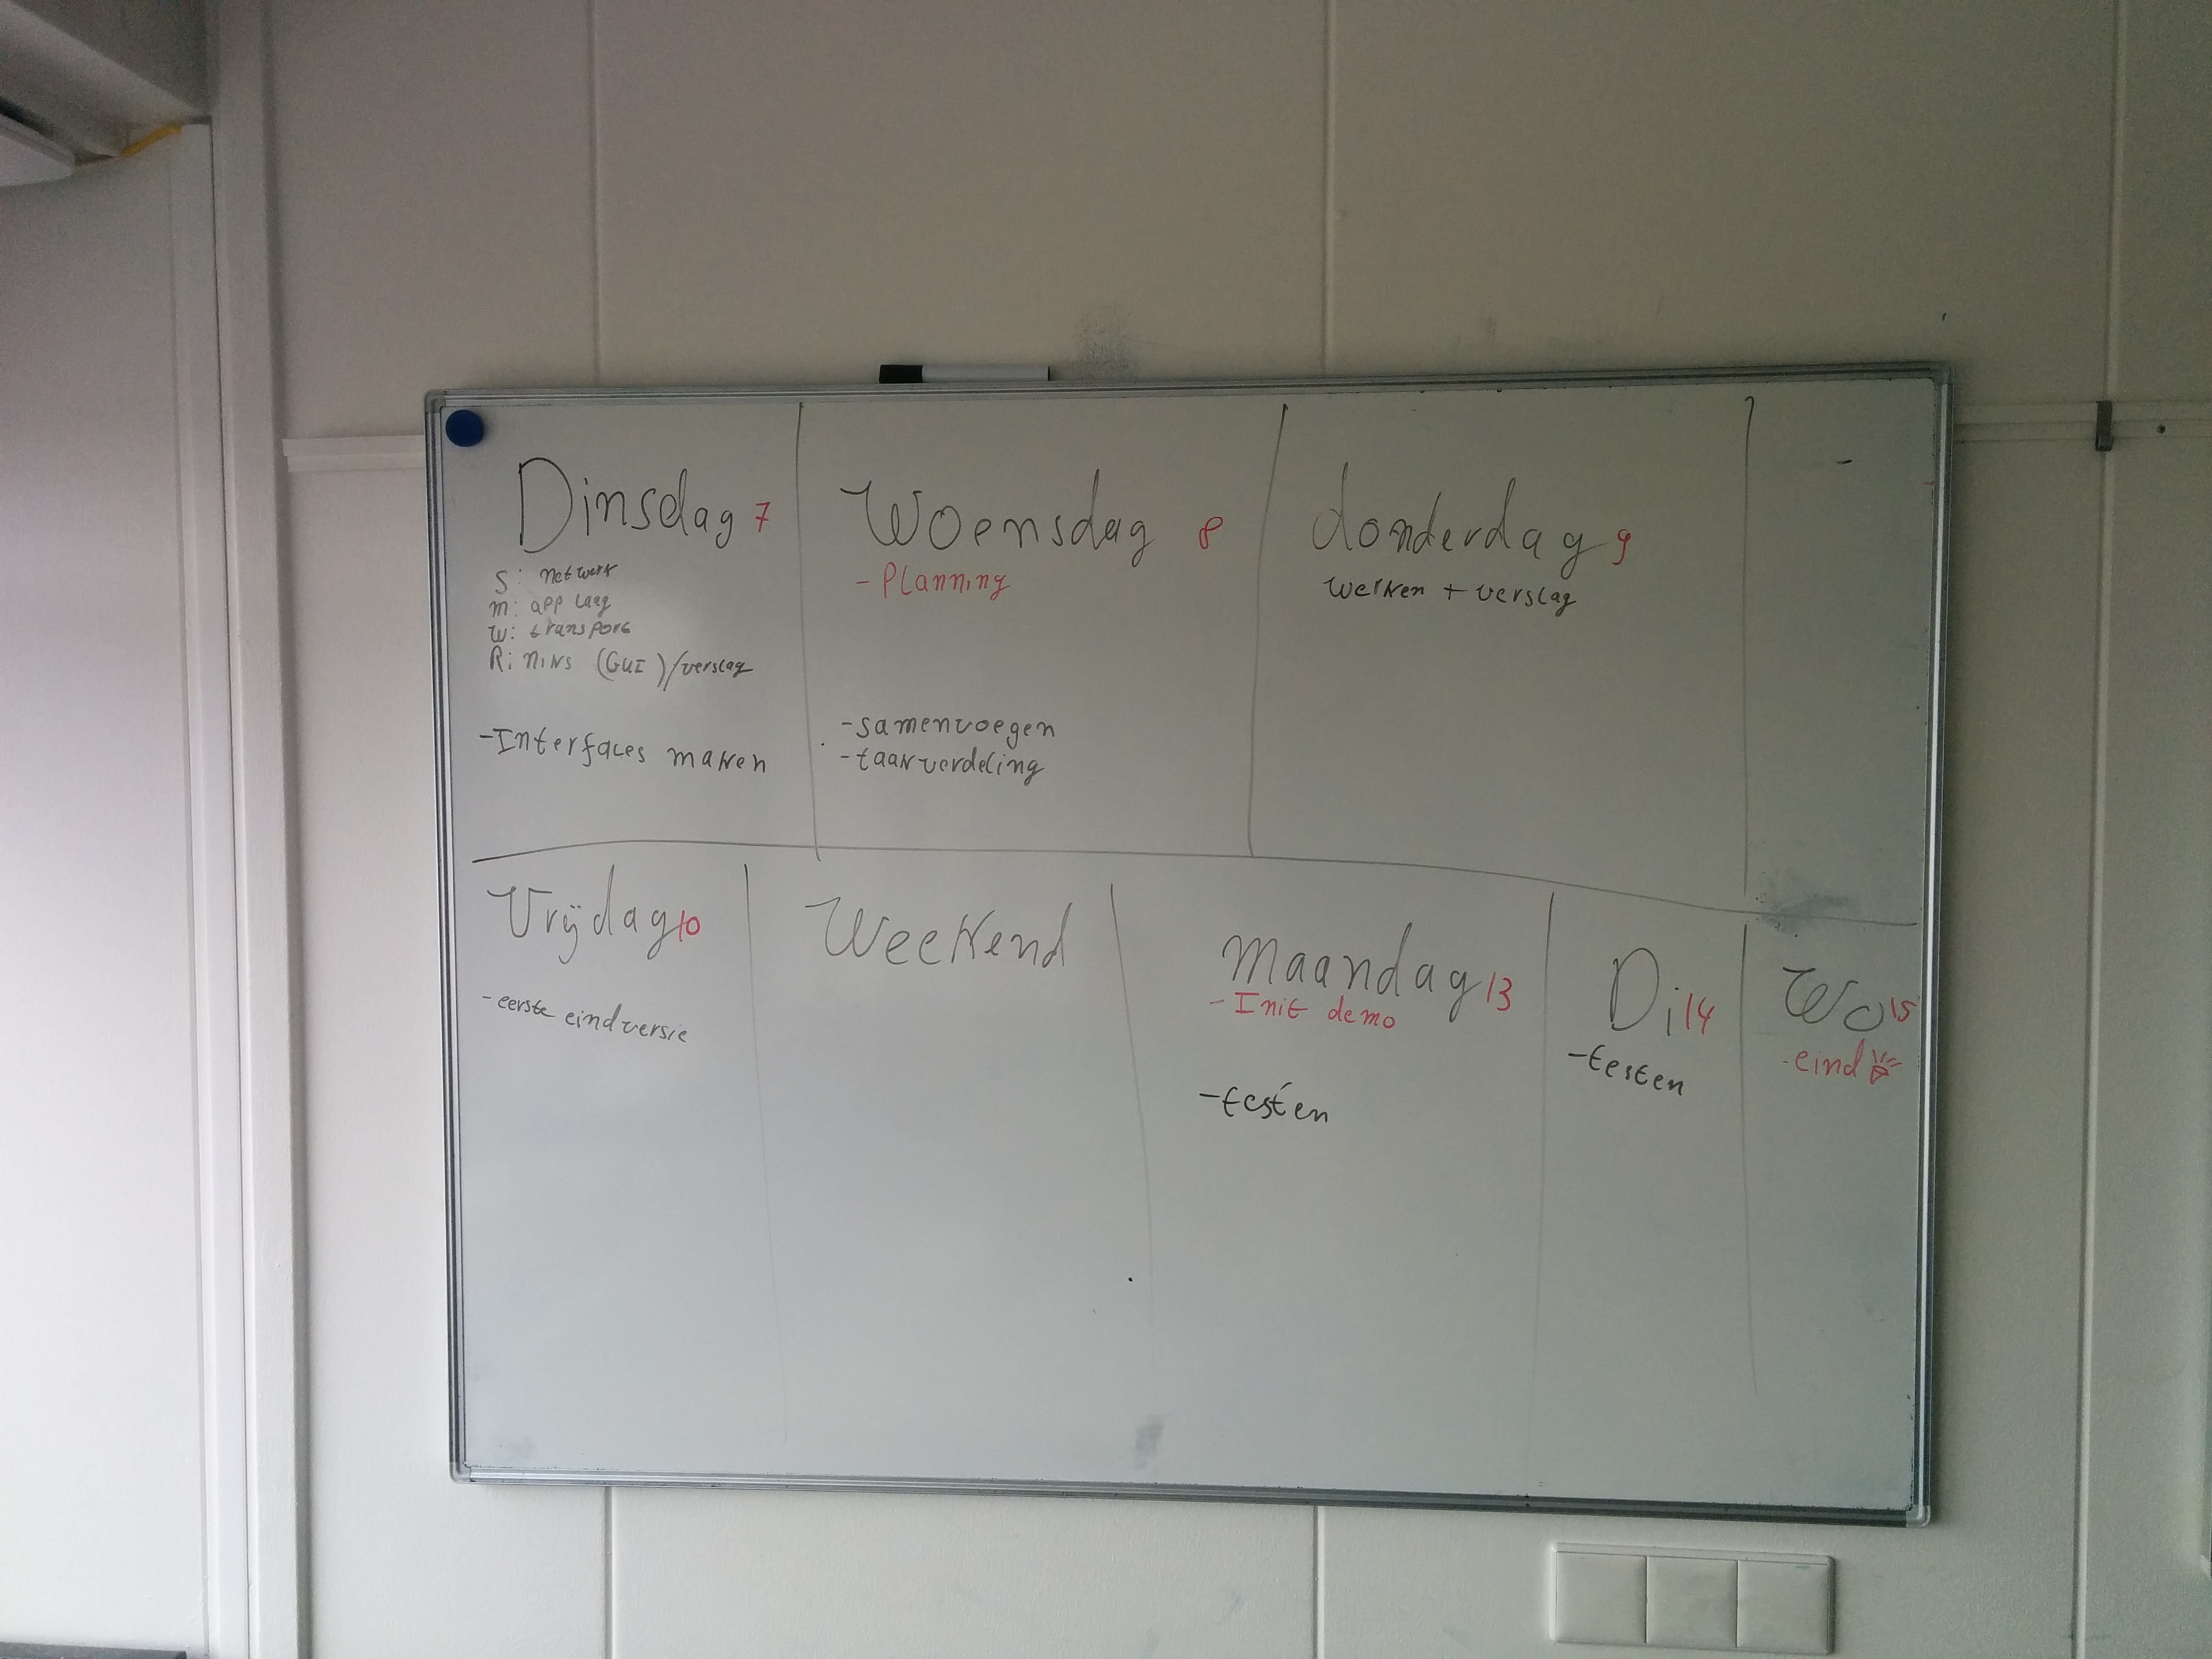 Dinsdag 7
S: netwerk
m: app laag
W: transport
R: niks (GUI)/verslag
-Interfaces maken
Woensdag 8
- Planning
-samenvoegen
-taakverdeling
donderdag 9
werken + verslag
Vrijdag 10
-eerste eindversie
Weekend
maandag 13
- Init demo
-testen
Di 14
-testen
Wo 15
-eind